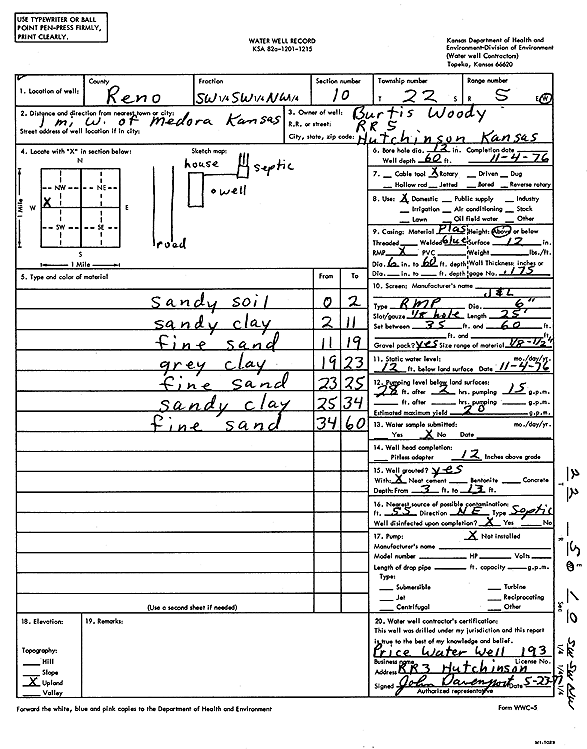 USE TYPEWRITER OR BALL
POINT PEN-PRESS FIRMLY,
PRINT CLEARLY.
WATER WELL RECORD
KSA 82a-1201-1215
Kansas Department of Health and
Environment-Division of Environment
(Water well Contractors)
Topeka, Kansas 66620
1. Location of well:
County
Reno
Fraction
SW 1/4 SW 1/4 NW 1/4
Section number
10
Township number
T 22 S
Range number
R 5 E/W
2. Distance and direction from nearest town or city:
1 mi W. of Medora Kansas
Street address of well location if in city:
3. Owner of well: Burtis Woody
R.R. or street: RR 5
City, state, zip code: Hutchinson Kansas
4. Locate with "X" in section below:
Sketch map:
N
NW NE
W X E
SW SE
S
1 Mile
1 Mile
house
septic
o well
road
5. Type and color of material From To
sandy soil 0 2
sandy clay 2 11
fine sand 11 19
grey clay 19 23
fine sand 23 25
sandy clay 25 34
fine sand 34 60
(Use a second sheet if needed)
6. Bore hole dia. 12 in. Completion date
Well depth 60 ft. 11-4-76
7. Cable tool X Rotary Driven Dug
Hollow rod Jetted Bored Reverse rotary
8. Use: X Domestic Public supply Industry
Irrigation Air conditioning Stock
Lawn Oil field water Other
9. Casing: Material Plas Height: Above or below
Threaded Welded glue Surface 12 in.
RMP X PVC Weight lbs./ft.
Dia. 6 in. to 60 ft. depth Wall Thickness: inches or
Dia. in. to ft. depth gage No. .175
10. Screen: Manufacturer's name
J & L
Type RMP Dia. 6"
Slot/gauze 1/8 hole Length 25'
Set between 35 ft. and 60 ft.
ft. and ft.
Gravel pack? yes Size range of material 1/8-1/2"
11. Static water level: mo./day/yr.
12 ft. below land surface Date 11-4-76
12. Pumping level below land surfaces:
28 ft. after 2 hrs. pumping 15 g.p.m.
ft. after hrs. pumping g.p.m.
Estimated maximum yield 20 g.p.m.
13. Water sample submitted: mo./day/yr.
Yes X No Date
14. Well head completion:
Pitless adapter 12 Inches above grade
15. Well grouted? yes
With: X Neat cement Bentonite Concrete
Depth: From 3 ft. to 13 ft.
16. Nearest source of possible contamination:
ft. 55 Direction NE Type Septic
Well disinfected upon completion? X Yes No
17. Pump: X Not installed
Manufacturer's name
Model number HP Volts
Length of drop pipe ft. capacity g.p.m.
Type:
Submersible Turbine
Jet Reciprocating
Centrifugal Other
18. Elevation:
Topography:
Hill
Slope
X Upland
Valley
19. Remarks:
20. Water well contractor's certification:
This well was drilled under my jurisdiction and this report
is true to the best of my knowledge and belief.
Price Water Well 193
Business name License No.
Address RR3 Hutchinson
Signed John Davenport Date 5-23-77
Authorized representative
Forward the white, blue and pink copies to the Department of Health and Environment
Form WWC-5
T 22 R 5 E W Sec 10 SW SW NW
1/4 1/4 1/4